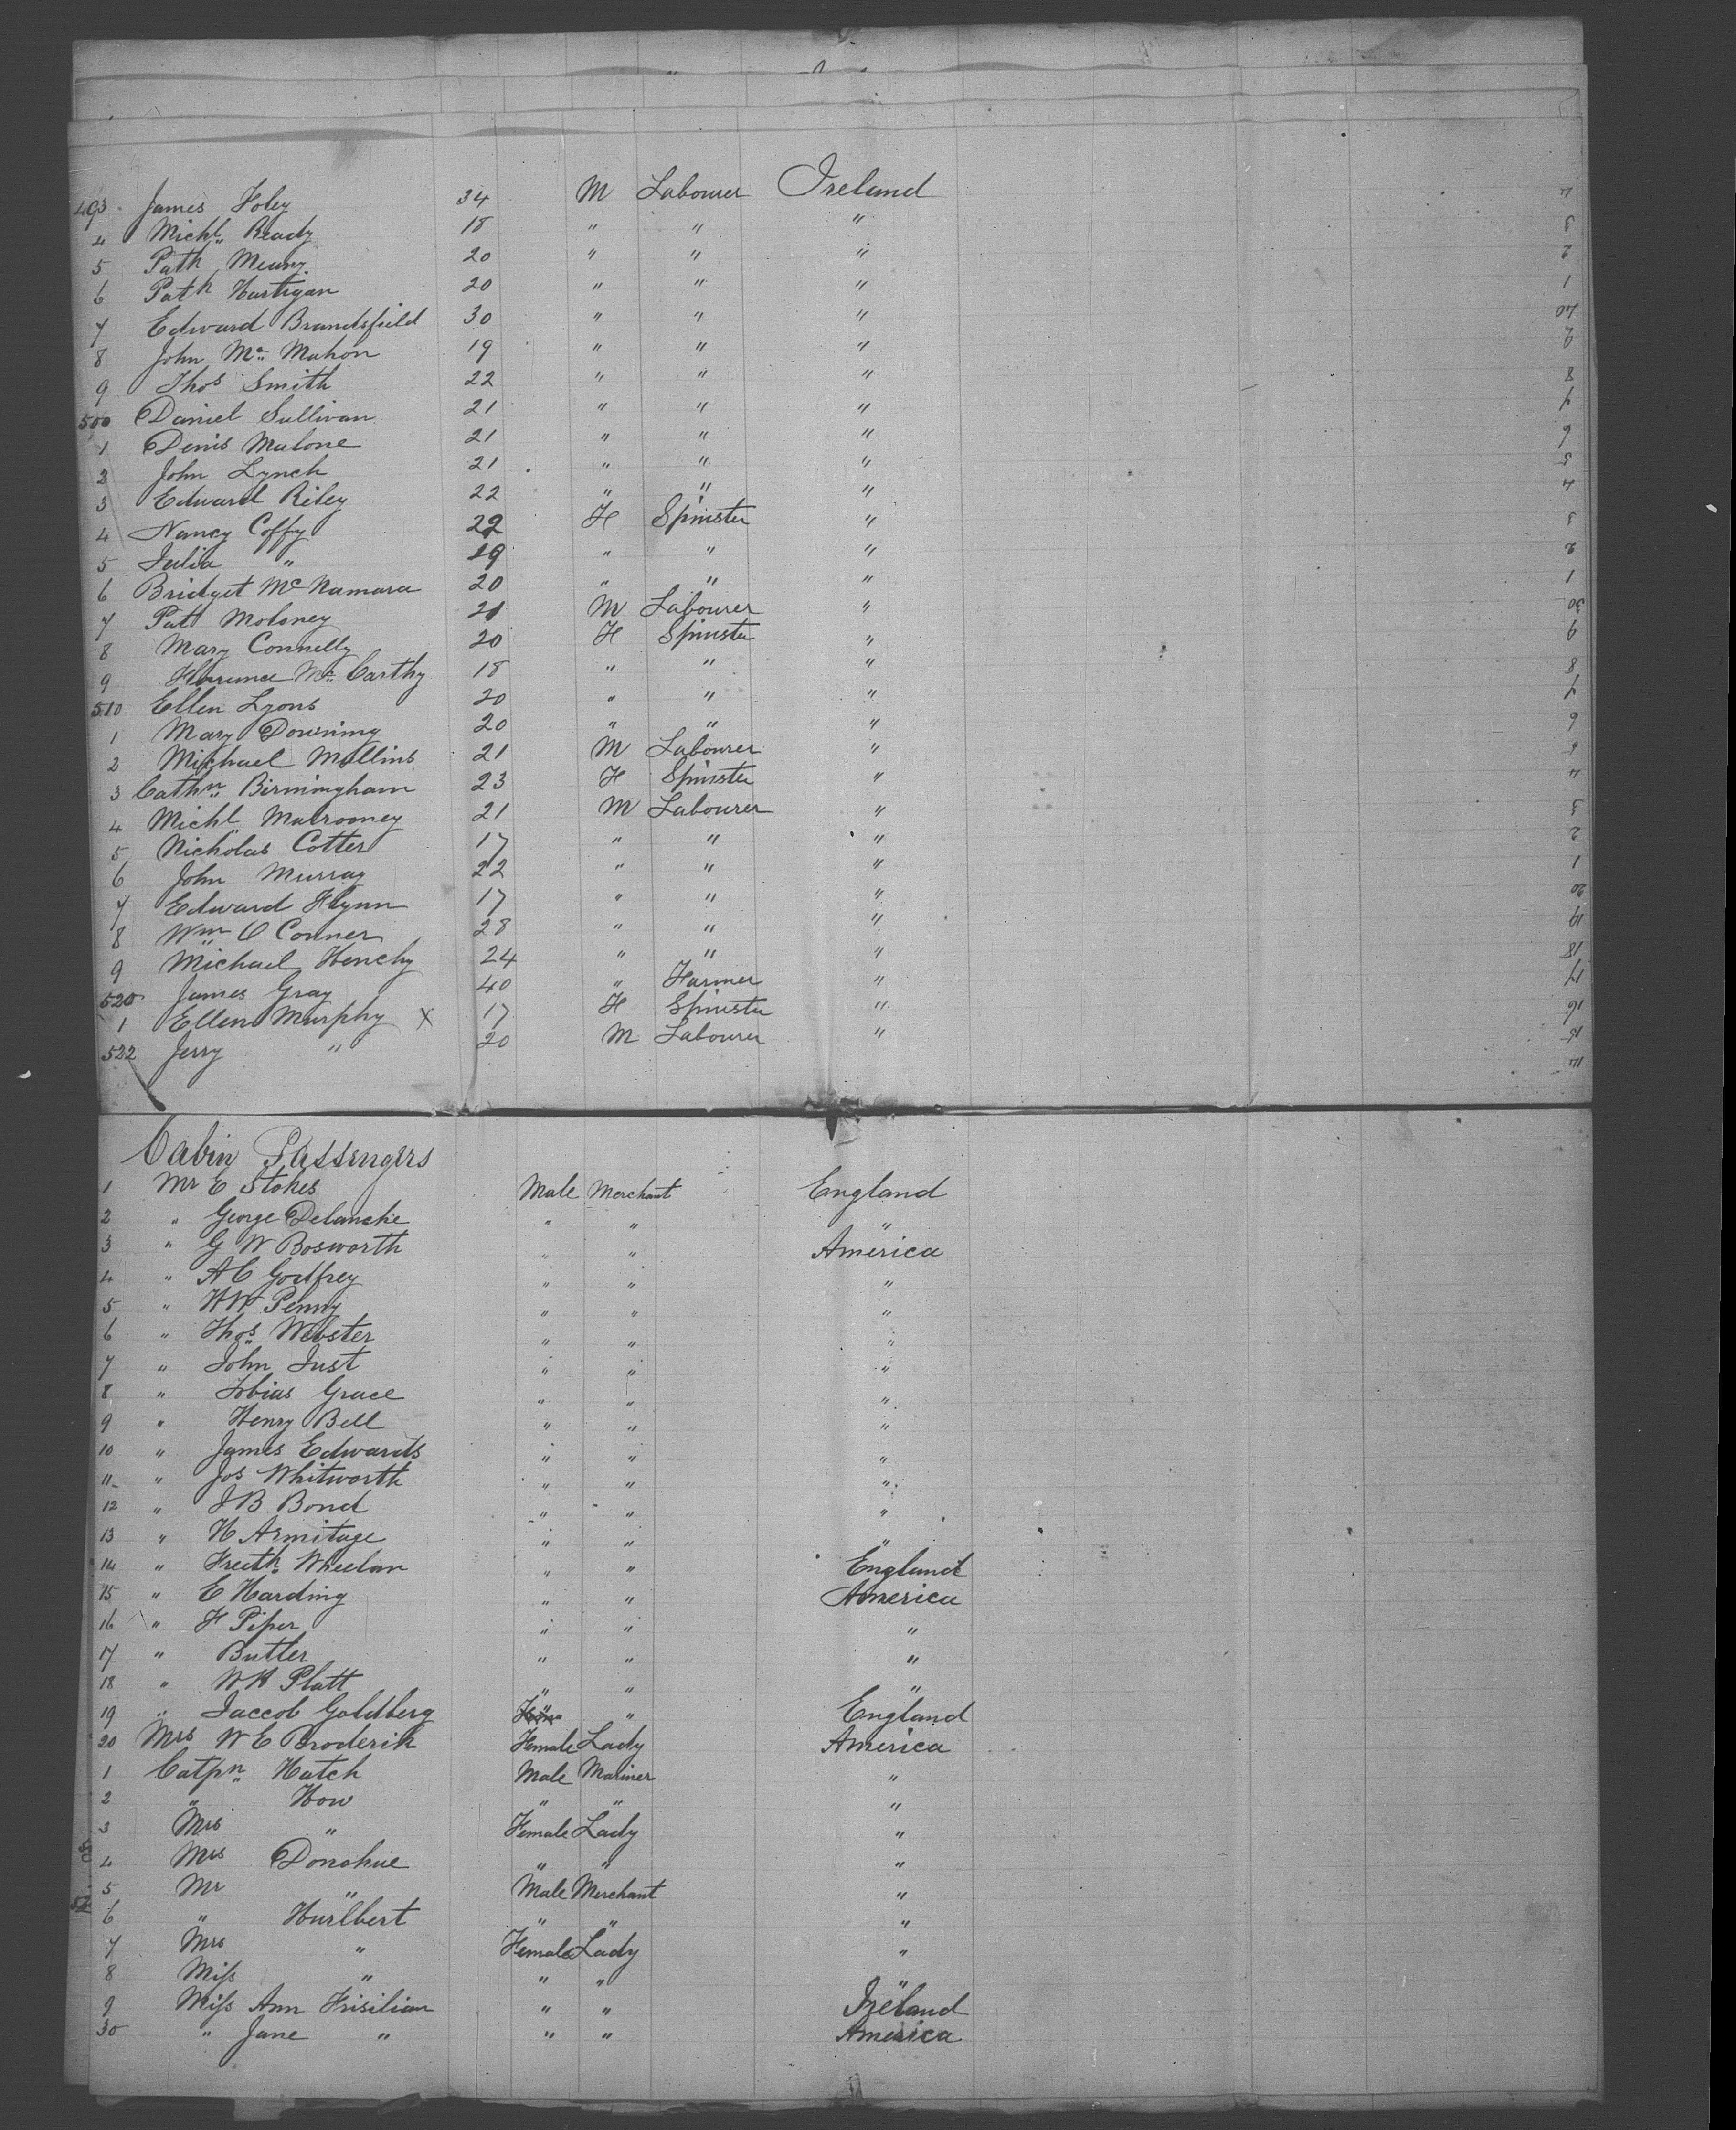 493 James Foley 34 M Labourer Ireland
4 Michl Ready 18 " " "
5 Patk Meany 20 " " "
6 Patk Hartigan 20 " " "
7 Edward Brandsfield 30 " " "
8 John Mc Mahon 19 " " "
9 Thos Smith 22 " " "
500 Daniel Sullivan 21 " " "
1 Denis Malone 21 " " "
2 John Lynch 21 " " "
3 Edward Riley 22 " " "
4 Nancy Coffy 22 F Spinster "
5 Julia " 19 " " "
6 Bridget Mc Namara 20 " " "
7 Pat Moloney 21 M Labourer "
8 Mary Connelly 20 F Spinster "
9 Florence Mc Carthy 18 " " "
510 Ellen Lyons 20 " " "
1 Mary Downing 20 " " "
2 Michael Mullins 21 M Labourer "
3 Cathn Birmingham 23 F Spinster "
4 Michl Mulrooney 21 M Labourer "
5 Nicholas Cotter 17 " " "
6 John Murray 22 " " "
7 Edward Flynn 17 " " "
8 Wm O Conner 28 " " "
9 Michael Henchy 24 " " "
520 James Gray 40 " Farmer "
1 Ellen Murphy X 17 F Spinster "
522 Jerry " 20 M Labourer "
Cabin Passengers
1 Mr E Stokes Male Merchant England
2 " George Delanshe " " "
3 " G W Bosworth " " America
4 " A C Godfrey " " "
5 " Penny " " "
6 " Thos Webster " " "
7 " John Just " " "
8 " Tobias Grace " " "
9 " Henry Bell " " "
10 " James Edwards " " "
11 " Jos Whitworth " " "
12 " J B Bond " " "
13 " H Armitage " " "
14 " Fredk Wheelan " " England
15 " E Harding " " America
16 " F Piper " " "
17 " Butler " " "
18 " W H Platt " " "
19 " Jaccob Goldberg " " England
20 Mrs W E Broderik Female Lady America
1 Catpn Hatch Male Mariner "
2 " How " " "
3 Mrs " Female Lady "
4 Mrs Donohue " " "
5 Mr " Male Merchant "
6 " Hurlbert " " "
7 Mrs " Female Lady "
8 Miss " " " "
9 Miss Ann Frisilian " " Ireland
30 " Jane " " " America